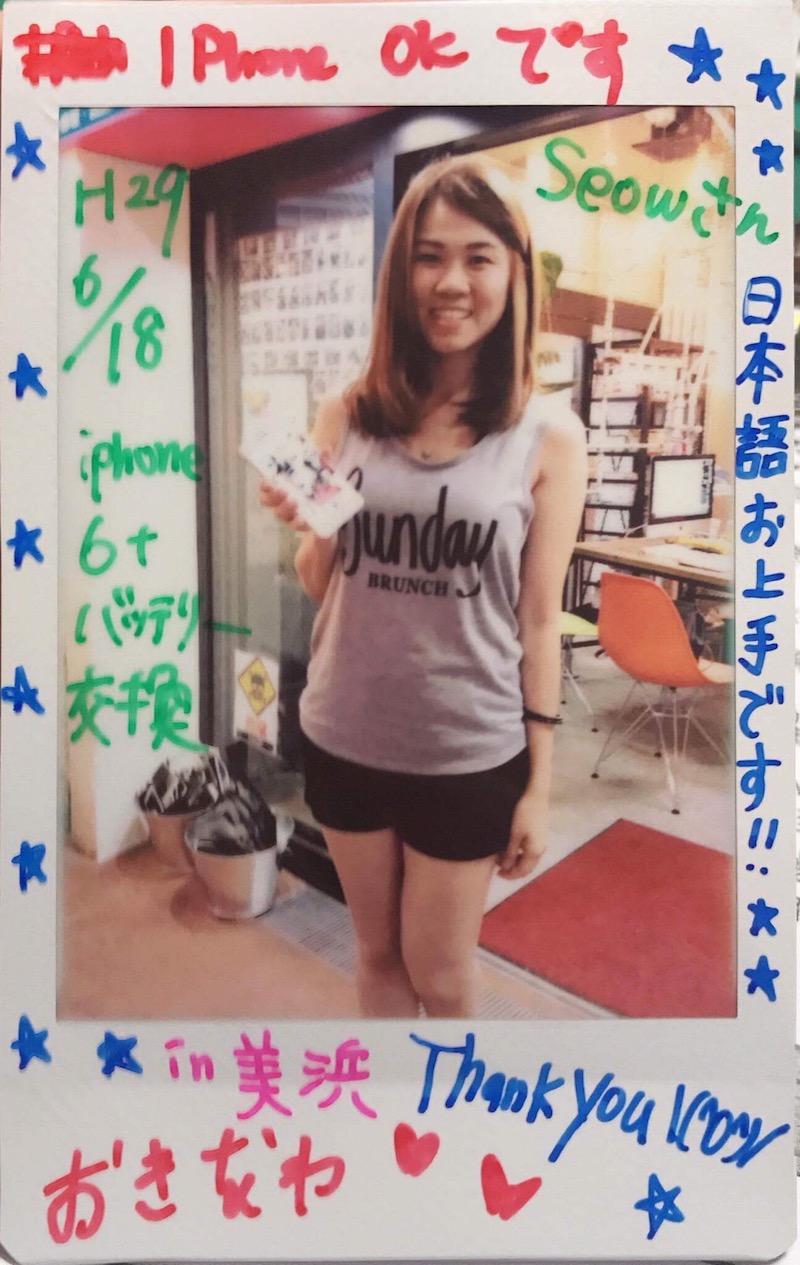 IPhone OKです
Seowさん
H29
6/18
iphone
6+
バッテリー
交換
日本語お上手です!!
Sunday
BRUNCH
in 美浜
Thank you
おきなわ